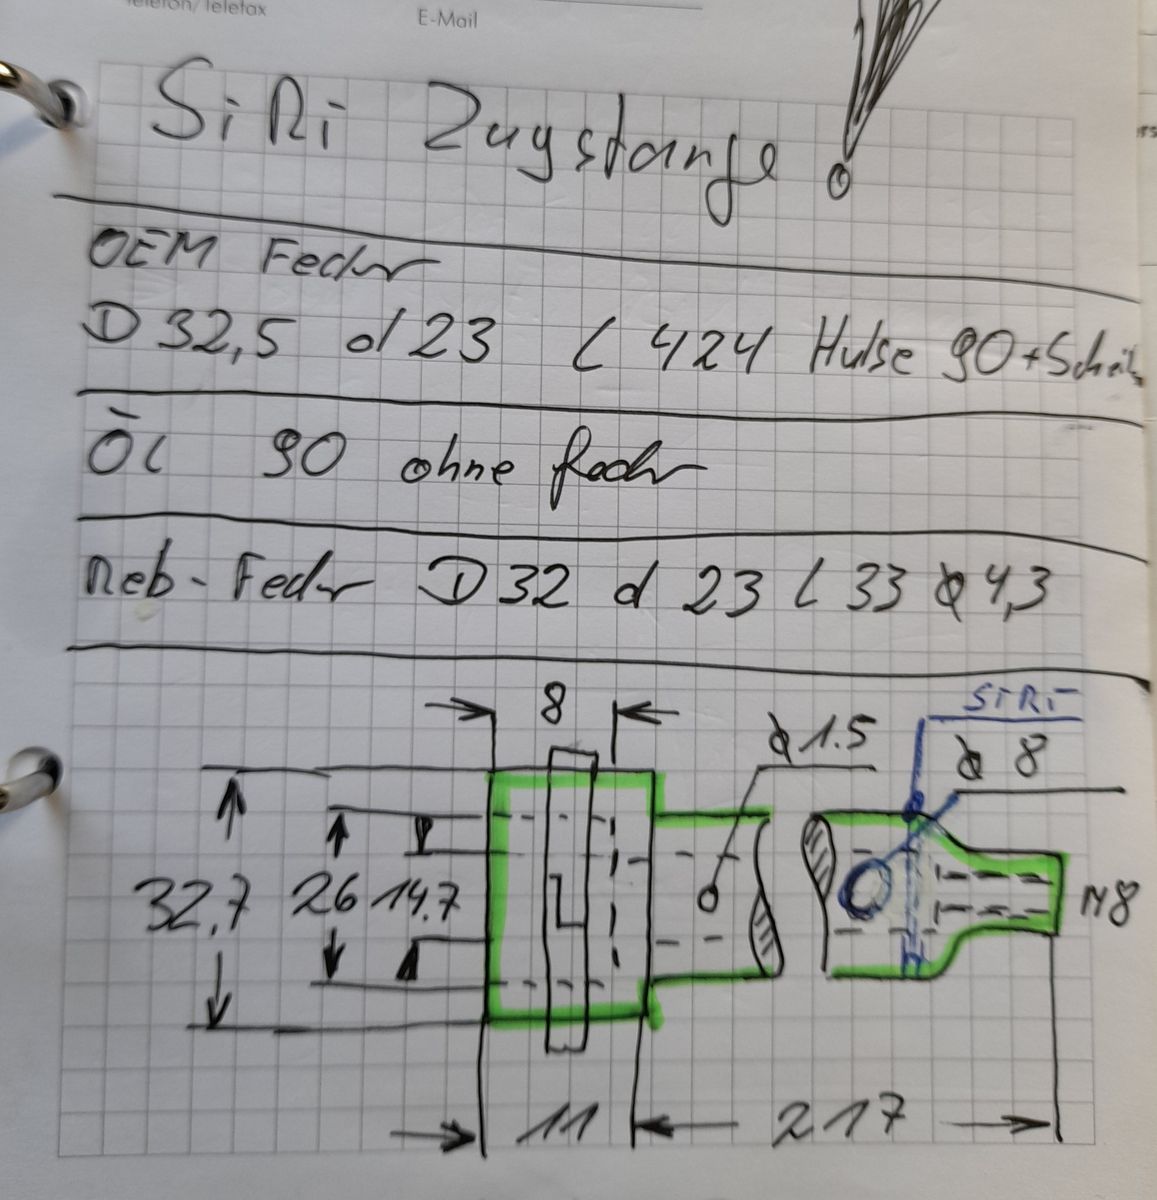 Telefon/Telefax
E-Mail
SiRi Zugstange
OEM Feder
D 32,5 d 23 L 424 Hülse 90 + Scheibe
Öl 90 ohne feder
neb - Feder D 32 d 23 L 33 ϕ 4,3
8
SiRi
ϕ 1.5
ϕ 8
32,7 26 14.7
M8
11
217